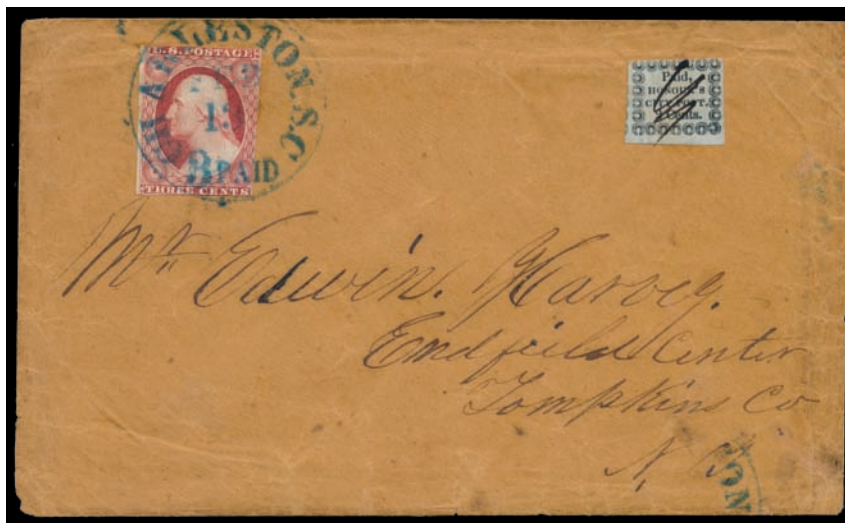 CHARLESTON. S.C
13
3 PAID
U.S. POSTAGE
THREE CENTS
Paid,
HONOUR'S
CITY POST.
2 Cents.
Mr Edwin. Harvey.
Endfield Center
Tompkins Co
N.
ON